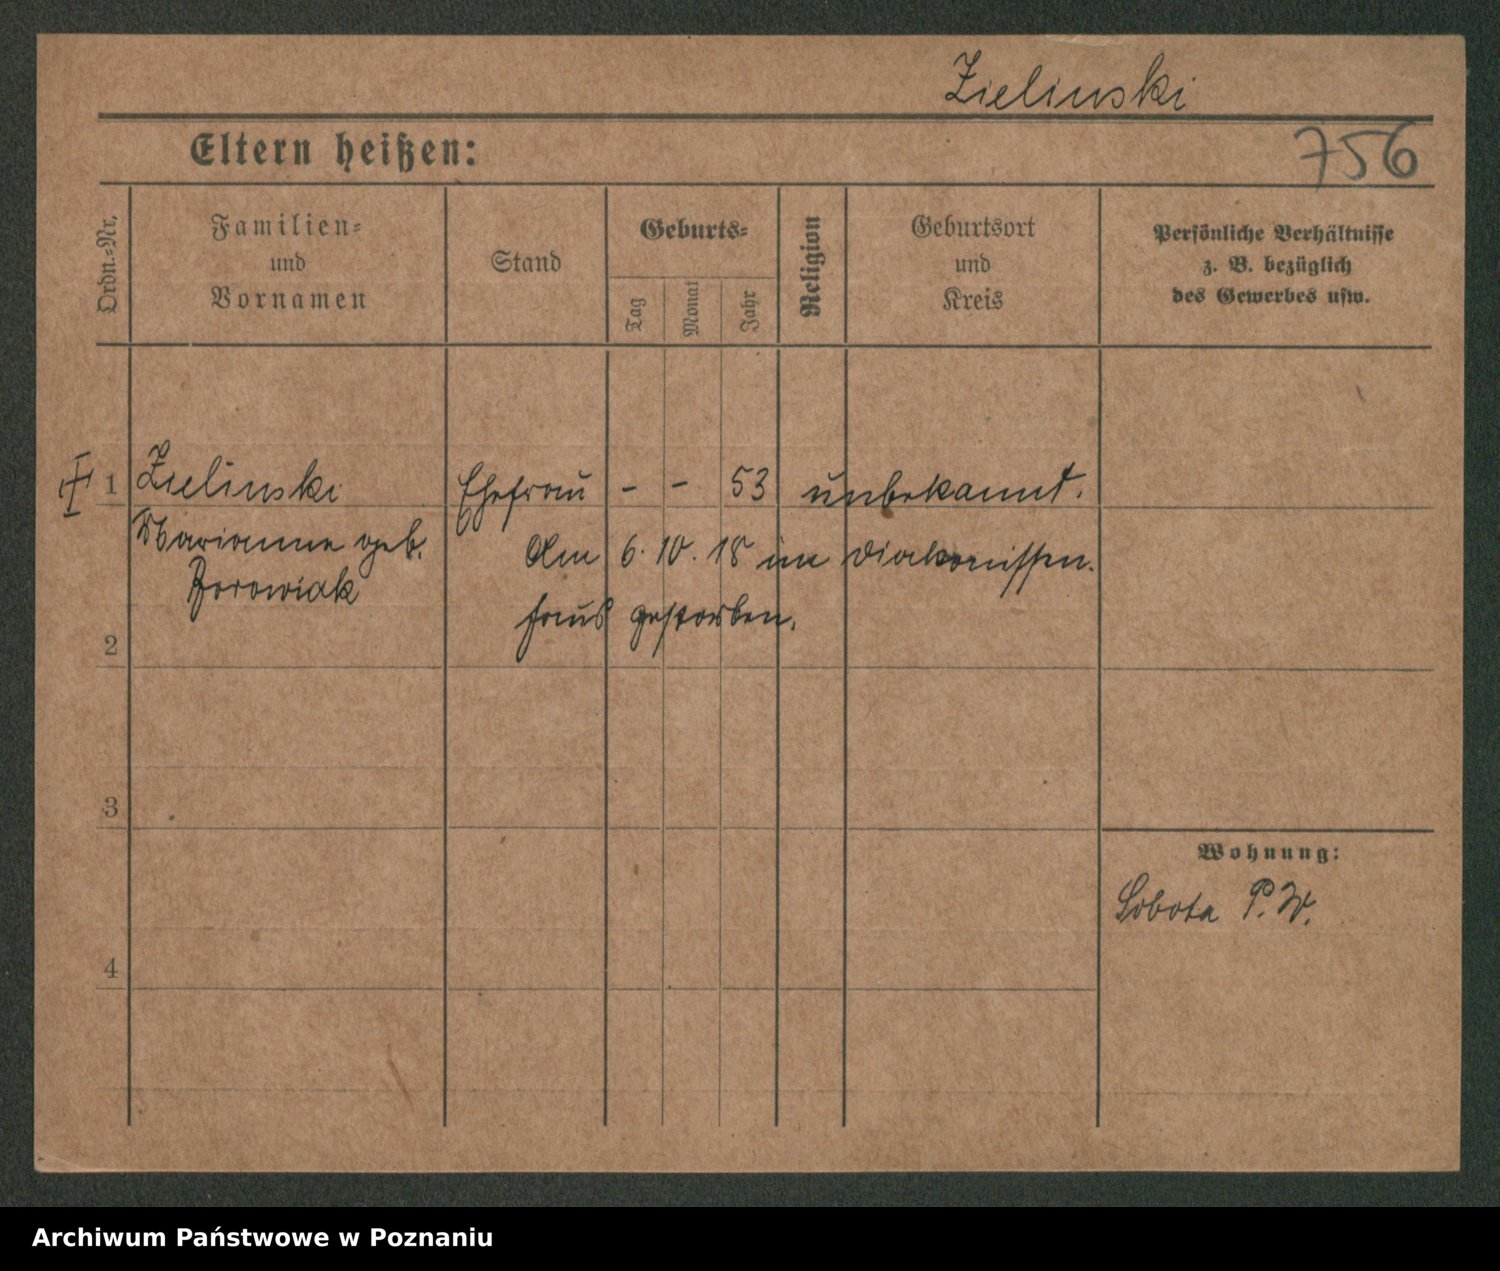 Zielinski
Eltern heißen:
756
Ordn.-Nr.
Familien-
und
Vornamen
Stand
Geburts-
Tag
Monat
Jahr
Religion
Geburtsort
und
Kreis
Persönliche Verhältnisse
z. B. bezüglich
des Gewerbes usw.
1 Zielinski Ehefrau - - 53 unbekannt.
Marianne geb. Am 6. 10. 18 im Diakonissen-
haus gestorben.
2
3
Wohnung:
Sobota P. W.
4
Archiwum Państwowe w Poznaniu